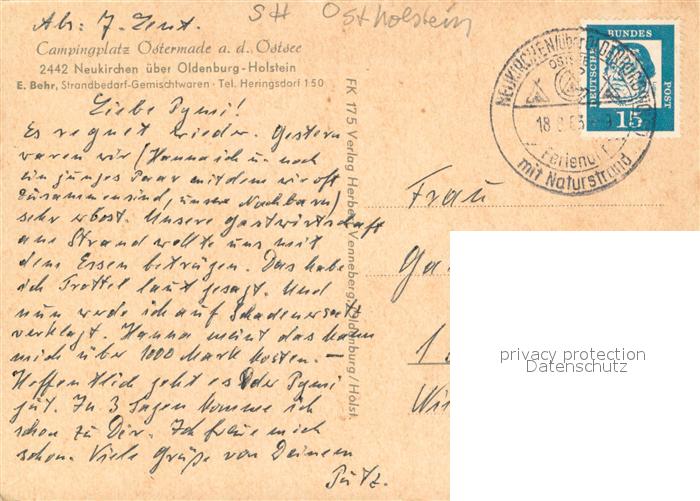 Abs: J. Zent.
SH Ostholstein
Campingplatz Ostermade a. d. Ostsee
2442 Neukirchen über Oldenburg-Holstein
E. Behr, Strandbedarf-Gemischtwaren · Tel. Heringsdorf 150
Liebe Pymi!
Es regnet wieder. Gestern
waren wir (Hanna ich u. noch
ein junges Paar mit dem wir oft
zusammensind, unsre Nachbarn)
sehr erbost. Unsere Gastwirtschaft
am Strand wollte uns mit
dem Essen betrügen. Das habe
ich Trottel laut gesagt. Und
nun werde ich auf Schadenersatz
verklagt. Hanna meint das kann
mich über 1000 Mark kosten. —
Hoffentlich geht es Der Pymi
gut. In 3 Tagen komme ich
schon zu Dir. Ich freue mich
schon. Viele Grüße von Deinem
Putz.
FK 175 Verlag Herbert Venneberg, Oldenburg/Holst
DEUTSCHE BUNDES POST
15
NEUKIRCHEN/über OLDENBURG
OSTSEE
18 8 63
Ferien
mit Naturstrand
Frau
Ga
1
Wi
privacy protection
Datenschutz